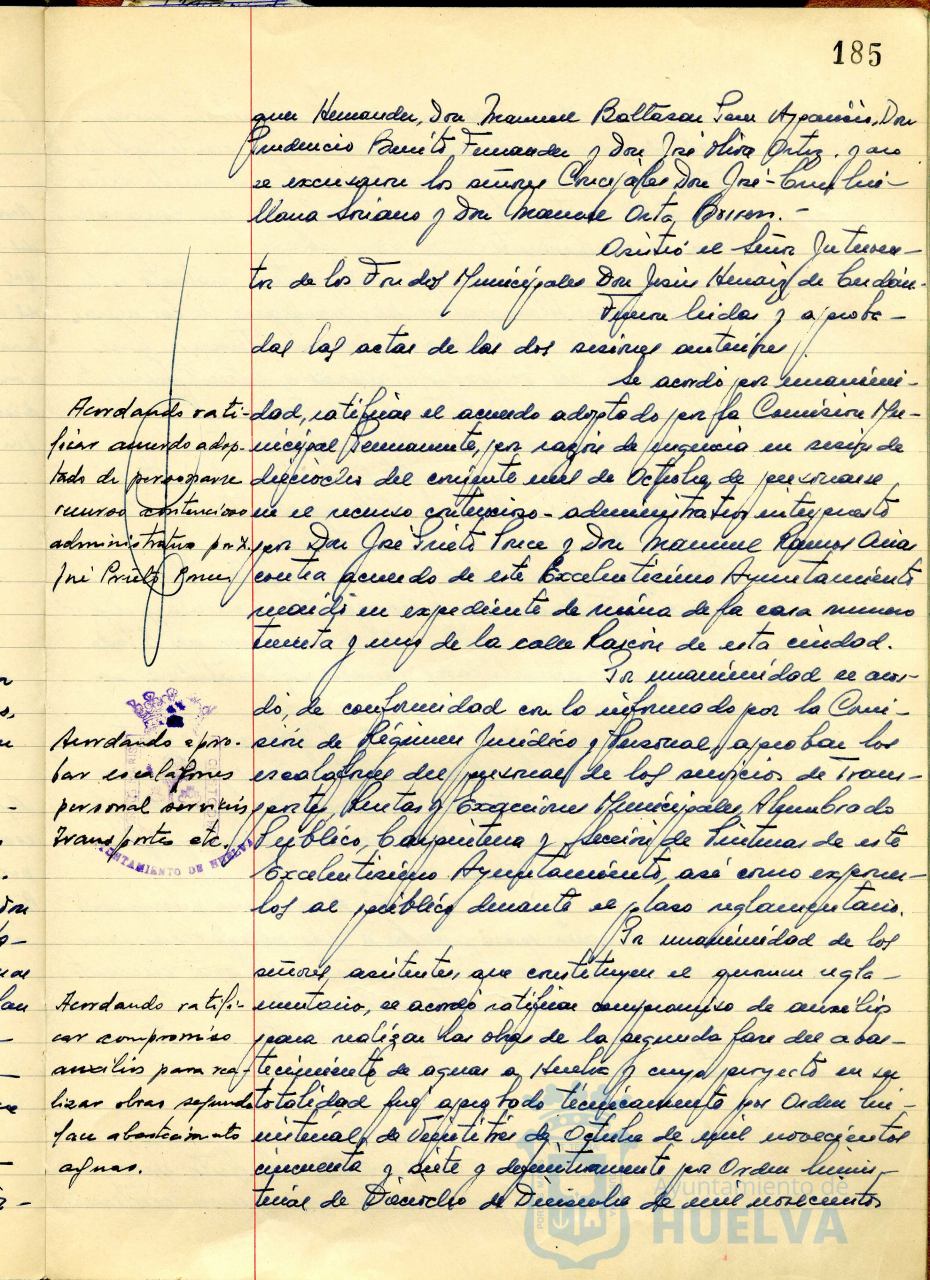 185
Hernandez, Don Manuel Baltasar Pons Aparicio, Don
Prudencio Benito Fernandez y Don José Oliva Ortiz. y no
se excusaron los señores Concejales Don José-Luis
llana Soriano y Don Manuel Orta
Asistió el Señor Interven-
tor de los Fondos Municipales Don Jesús de
Fueron leidas y aproba-
das las actas de las dos sesiones anteriores.
Se acordó por unanimi-
dad, ratificar el acuerdo adoptado por la Comisión Mu-
nicipal Permanente, por razon de urgencia en sesión de
dieciocho del corriente mes de Octubre, de personarse
en el recurso contencioso-administrativo interpuesto
por Don José Prieto Ponce y Don Manuel Ramos Arias
contra acuerdo de este Excelentisimo Ayuntamiento
en expediente de ruina de la casa numero
treinta y uno de la calle Rascón de esta ciudad.
Acordando rati-
ficar acuerdo adop-
tado de personarse
recurso contencioso
administrativo por
José Prieto Ponce
Por unanimidad se acor-
dó, de conformidad con lo informado por la Comi-
sión de Régimen Jurídico y Personal, aprobar los
escalafones del personal de los servicios de Trans-
portes, Rentas y Exacciones Municipales, Alumbrado
Público, Carpinteria y Sección de Pinturas de este
Excelentisimo Ayuntamiento, asi como exponer-
los al público durante el plazo reglamentario.
Acordando apro-
bar escalafones
personal servicios
transportes etc.
AYUNTAMIENTO DE HUELVA
Por unanimidad de los
señores asistentes, que constituyen el quorum regla-
mentario, se acordó ratificar compromiso de auxilios
para realizar las obras de la segunda fase del abas-
tecimiento de aguas a Huelva y cuyo proyecto en su
totalidad fué aprobado técnicamente por Orden Mi-
nisterial de Veintitres de Octubre de mil novecientos
cincuenta y siete y definitivamente por Orden Minis-
terial de Dieciocho de Diciembre de mil novecientos
Acordando ratifi-
car compromiso
auxilios para rea-
lizar obras segunda
fase abastecimiento
aguas.
Ayuntamiento de
HUELVA